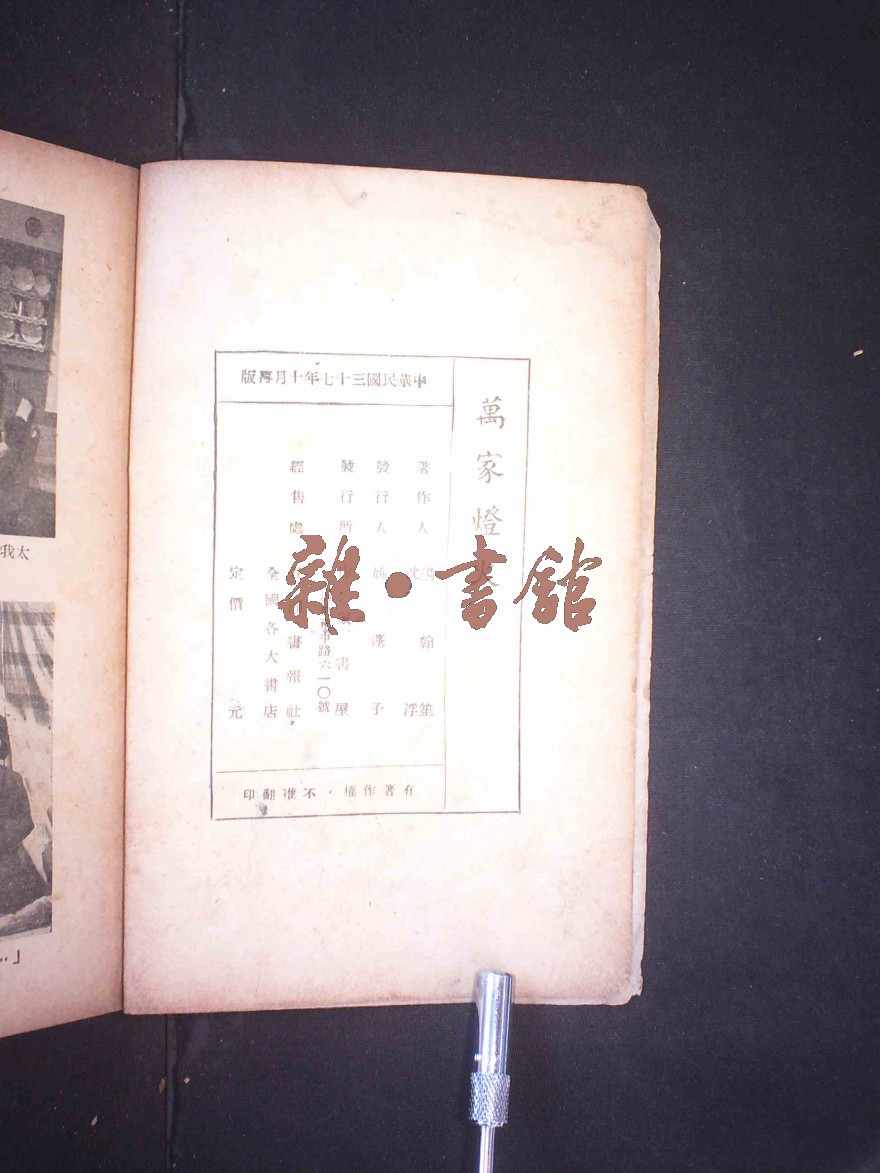 萬家燈火
中華民國三十七年十月再版
著作人 陽翰笙
沈浮
發行人 姚蓬子
發行所 書屋
中路六一〇號
經售處 書報社
全國各大書店
定價 元
有著作權・不准翻印
雜・書館
太我